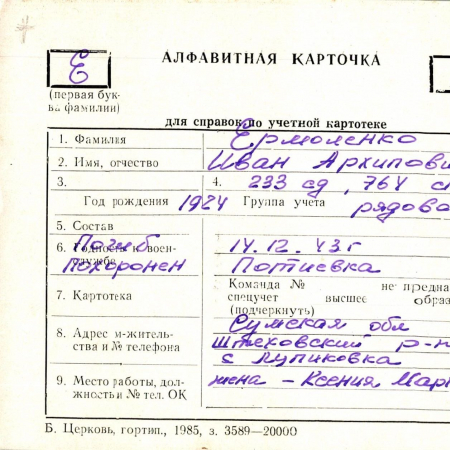 АЛФАВИТНАЯ КАРТОЧКА
Е
(первая бук-
ва фамилии)
для справок по учетной картотеке
1. Фамилия Ермоленко
2. Имя, отчество Иван Архипови
3. 4. 233 сд, 764 с
Год рождения 1924 Группа учета рядова
5. Состав
6. Годность к воен- Погиб 14.12.43г
службе Похоронен Потиевка
Команда № не предна
7. Картотека спецучет высшее образ
(подчеркнуть)
8. Адрес м-житель- Сумская обл
ства и № телефона р-н
с Лупиковка
9. Место работы, дол- жена - Ксения Мар
жность и № тел. ОК
Б. Церковь, гортип., 1985, з. 3589—20000